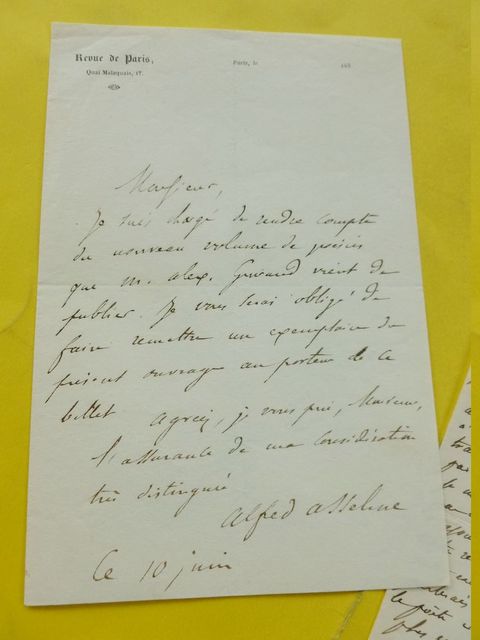 Revue de Paris,
Quai Malaquais, 17.
Paris, le 185
Monsieur,
Je suis chargé de rendre compte
du nouveau volume de poésies
que M. Alex. Guiraud vient de
publier. Je vous serai obligé de
faire remettre un exemplaire du
présent ouvrage au porteur de ce
billet. Agréez, je vous prie, Monsieur,
l'assurance de ma considération
très distinguée
Alfred Asseline
Ce 10 juin